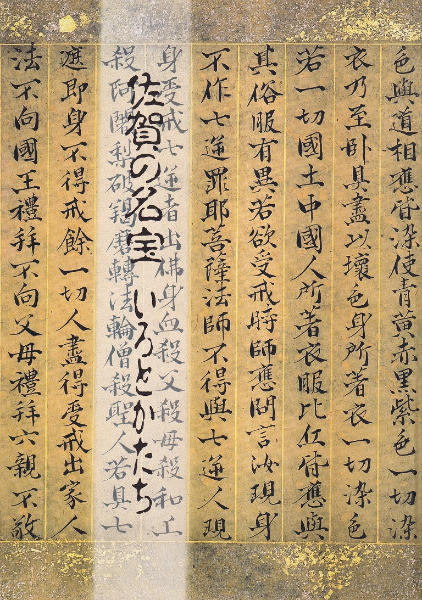 色與道相應皆染使青黃赤黑紫色一切染
衣乃至臥具盡以壞色身所著衣一切染色
若一切國土中國人所著衣服比丘皆應與
其俗服有異若欲受戒時師應問言汝現身
不作七逆罪耶菩薩法師不得與七逆人現
身受戒七逆者出佛身血殺父殺母殺和上
佐賀の名宝 いろとかたち
殺阿闍梨破羯磨轉法輪僧殺聖人若具七
遮即身不得戒餘一切人盡得受戒出家人
法不向國王禮拜不向父母禮拜六親不敬